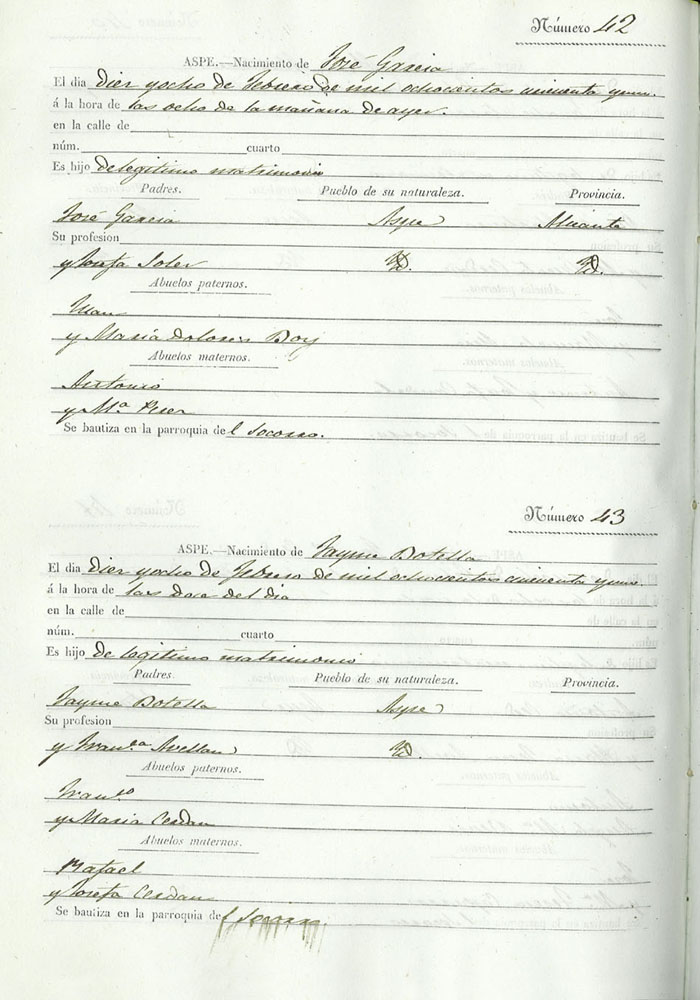 Número 42
ASPE.—Nacimiento de José Garcia
El dia diez yocho de Febrero de mil ochocientos cincuenta yuno
á la hora de las ocho de la mañana de ayer.
en la calle de
núm. cuarto
Es hijo de legitimo matrimonio
Padres. Pueblo de su naturaleza. Provincia.
José Garcia Aspe Alicante
Su profesion
y Josefa Soler Yd. Yd.
Abuelos paternos.
Juan
y Maria Dolores Boy
Abuelos maternos.
Antonio
y Mª
Se bautiza en la parroquia del Socorro.
Número 43
ASPE.—Nacimiento de Jayme Botella
El dia diez yocho de Febrero de mil ochocientos cincuenta yuno
á la hora de las doce del dia
en la calle de
núm. cuarto
Es hijo de legitimo matrimonio
Padres. Pueblo de su naturaleza. Provincia.
Jayme Botella Aspe
Su profesion
y Franca Avellan Yd.
Abuelos paternos.
Franco
y Maria Cerdan
Abuelos maternos.
Rafael
y Josefa Cerdan
Se bautiza en la parroquia del Socorro